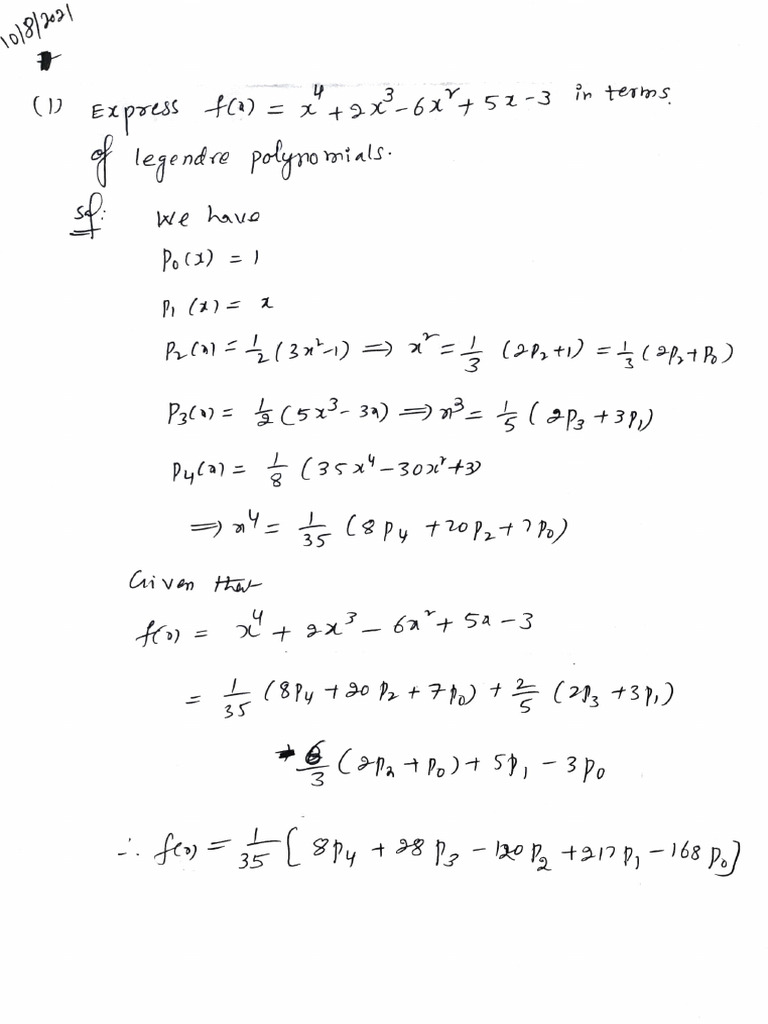 10/8/2021
(1) Express f(x) = x⁴ + 2x³ - 6x² + 5x - 3 in terms
of legendre polynomials.
Sol: We have
P₀(x) = 1
P₁(x) = x
P₂(x) = 1/2 (3x² - 1) ⇒ x² = 1/3 (2P₂ + 1) = 1/3 (2P₂ + P₀)
P₃(x) = 1/2 (5x³ - 3x) ⇒ x³ = 1/5 (2P₃ + 3P₁)
P₄(x) = 1/8 (35x⁴ - 30x² + 3)
⇒ x⁴ = 1/35 (8P₄ + 20P₂ + 7P₀)
Given that
f(x) = x⁴ + 2x³ - 6x² + 5x - 3
= 1/35 (8P₄ + 20P₂ + 7P₀) + 2/5 (2P₃ + 3P₁)
- 6/3 (2P₂ + P₀) + 5P₁ - 3P₀
∴ f(x) = 1/35 [8P₄ + 28P₃ - 120P₂ + 217P₁ - 168P₀]